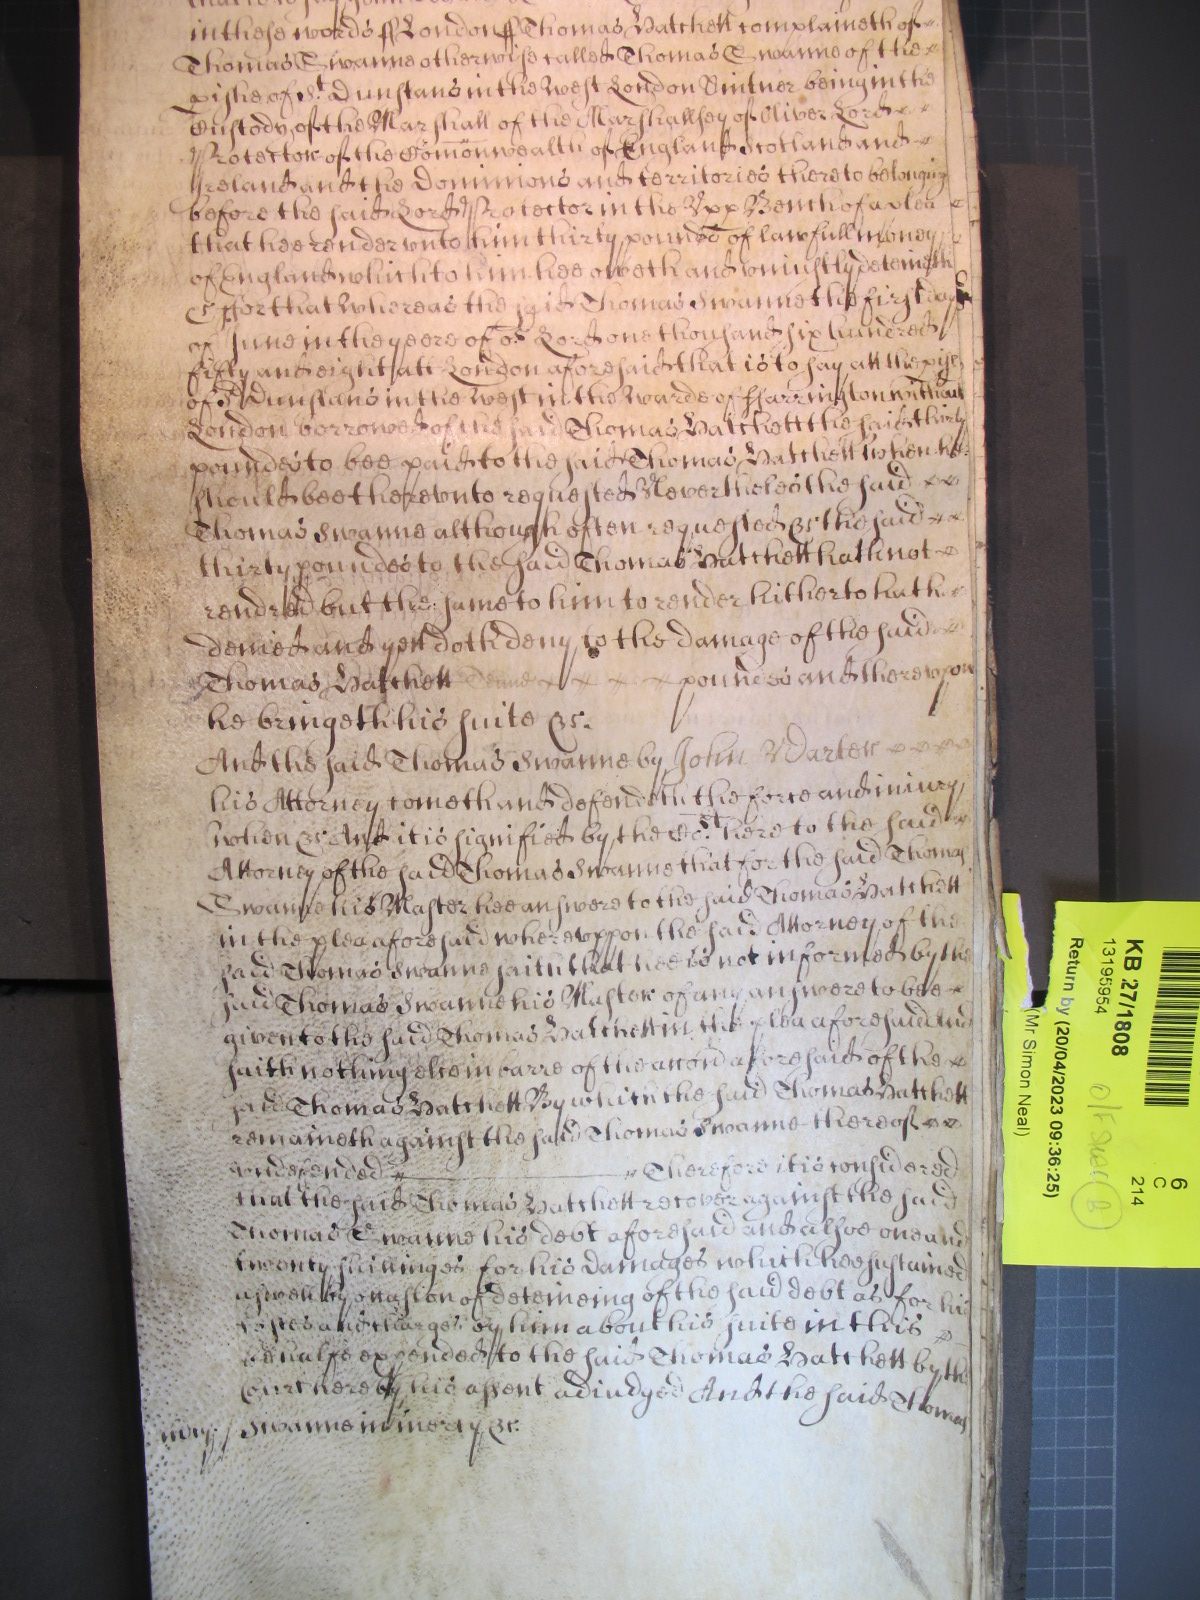 in these words ss London ss Thomas Hatchett complaineth of
Thomas Swanne otherwise called Thomas Swanne of the
pishe of St Dunstans in the West London Vintner being in the
Custody of the Marshall of the Marshallsey of Oliver Lord
Protector of the Comonwealth of England Scotland and
Ireland and the Dominions and territories thereto belonging
before the said Lord Protector in the Upp Bench of a plea
that hee render unto him thirty pounds of lawfull money
of England which to him hee oweth and uniustly deteineth
&c for that Whereas the said Thomas Swanne the first day
of June in the yeere of or Lord one thousand six hundred
fifty and eight att London aforesaid that is to say att the pish
of St Dunstans in the West in the Warde of Farrington without
London borrowed of the said Thomas Hatchett the said thirty
poundes to bee paid to the said Thomas Hatchett when hee
should bee thereunto requested Neverthelesse the said
Thomas Swanne although often requested &c the said
thirty poundes to the said Thomas Hatchett hath not
rendred but the same to him to render hitherto hath
denied and yett doth deny to the damage of the said
Thomas Hatchett poundes and thereupon
he bringeth his suite &c.
And the said Thomas Swanne by John Darter
his Attorney cometh and defendeth the force and iniury
when &c And it is signified by the Cort here to the said
Attorney of the said Thomas Swanne that for the said Thomas
Swanne his Master hee answere to the said Thomas Hatchett
in the plea aforesaid whereuppon the said Attorney of the
said Thomas Swanne saith that hee is not informed by the
said Thomas Swanne his Master of any answere to bee
given to the said Thomas Hatchett in the plea aforesaid and
saith nothing else in barre of the accon aforesaid of the
said Thomas Hatchett By which the said Thomas Hatchett
remaineth against the said Thomas Swanne thereof
undefended Therefore it is considered
that the said Thomas Hatchett recover against the said
Thomas Swanne his debt aforesaid and alsoe one and
twenty shillinges for his damages which hee sustained
aswell by reason of deteineing of the said debt as for his
costes and charges by him about his suite in this
behalfe expended to the said Thomas Hatchett by the
Court here by his assent adiudged And the said Thomas
mcy / Swanne in mercy &c.
6
C
214
KB 27/1808
13195954
Return by (20/04/2023 09:36:25)
(Mr Simon Neal)